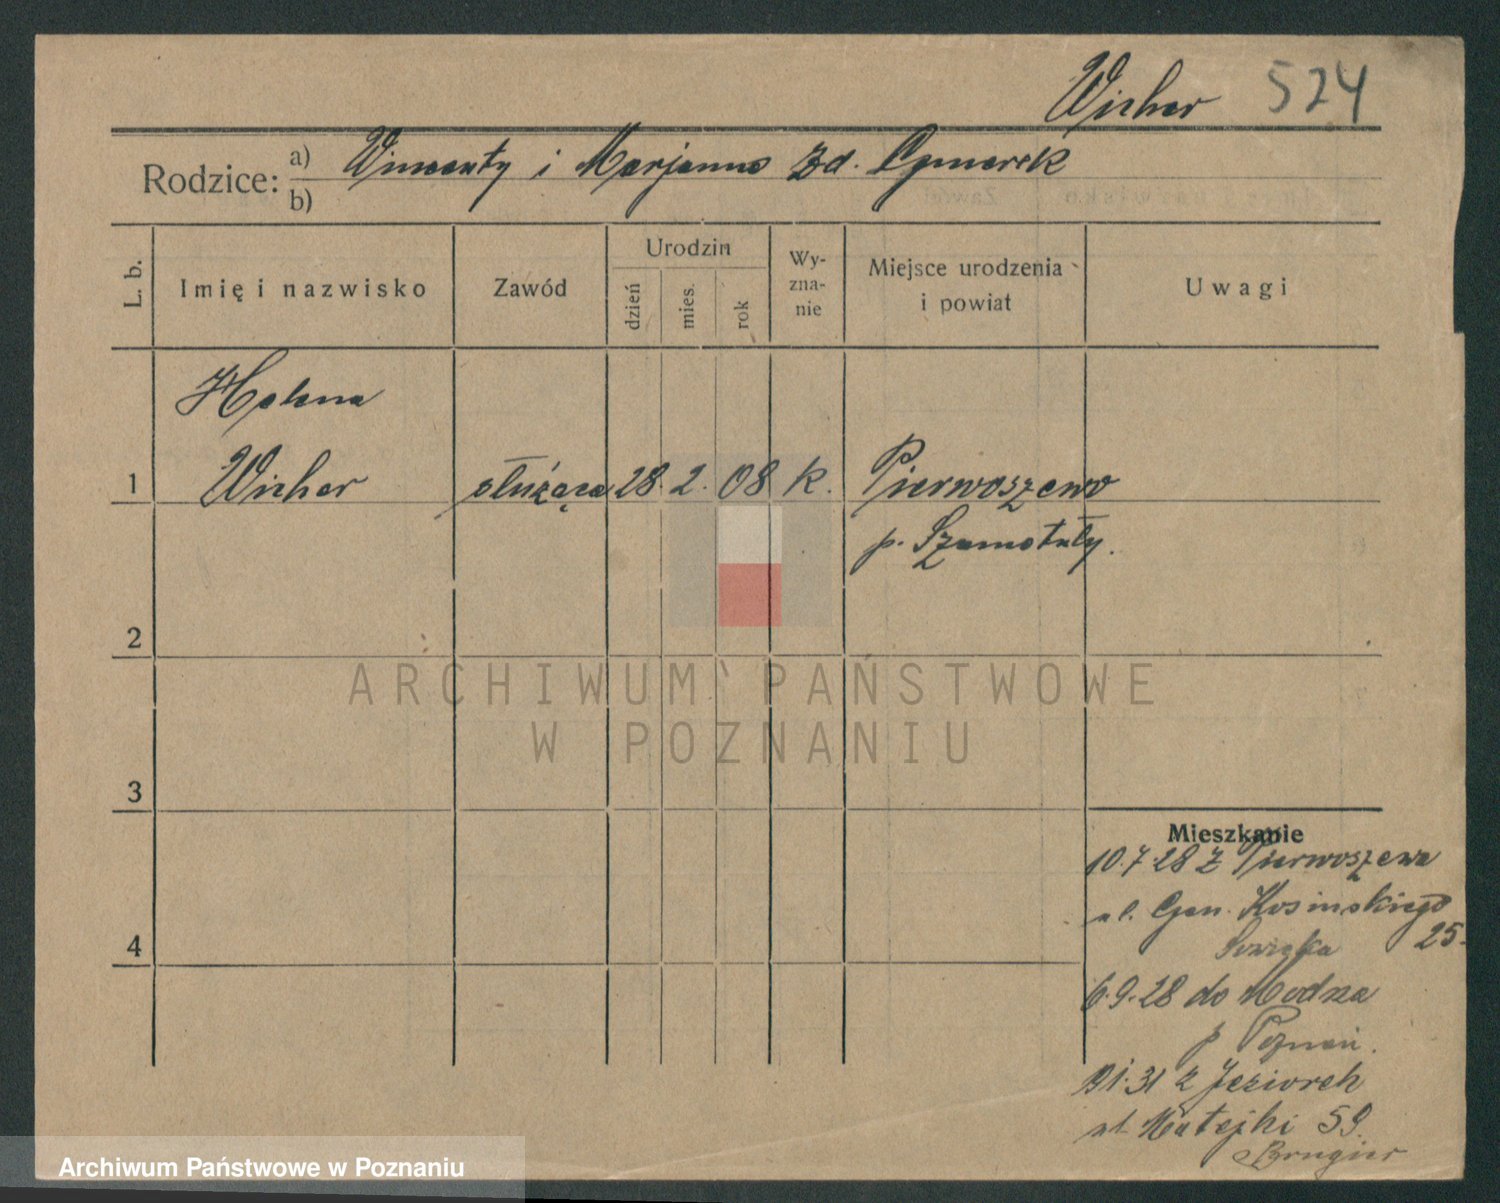 Wicher 524
Rodzice: a) Wincenty i Marjanna zd.
b)
L. b. Imię i nazwisko Zawód Urodzin dzień mies. rok Wy-zna-nie Miejsce urodzenia i powiat Uwagi
Helena
1 Wicher służąca 28. 2. 08 k. Pierwoszewo
p. Szamotuły.
2
ARCHIWUM PAŃSTWOWE
W POZNANIU
3
Mieszkanie
10.7.28 z Pierwoszewa
ul. Gen. Kosińskiego
25
4
6.9.28 do
p Poznań.
31 z Jeziorek
ul. Matejki 59.
Brugier
Archiwum Państwowe w Poznaniu